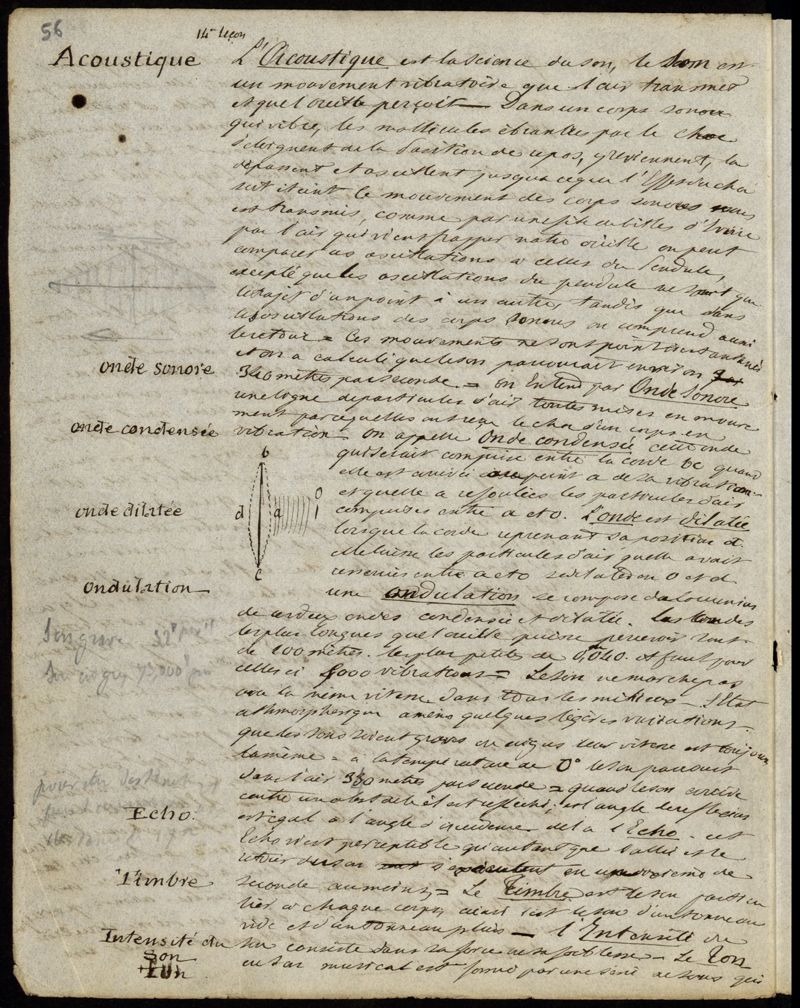 56
14e Leçon
Acoustique
L'Acoustique est la science du son, le Son est
un mouvement vibratoire que l'air transmet
et que l'oreille perçoit — Dans un corps sonore
qui vibre, les mollécules ébranlées par le choc
s'éloignent de la position de repos, y reviennent, la
dépassent et oscillent jusqu'a ceque l'Effet du choc
soit éteint le mouvement des corps sonores nous
est transmis, comme par une file de billes d'Ivoire
par l'air qui vient frapper notre oreille on peut
comparer ces oscillations à celles du Pendule,
excepté que les oscillations du pendule ne sont que
le trajet d'un point à un autre, tandis que dans
les oscillations des corps sonores on comprend aussi
le retour = Ces mouvements ne sont point instantanés
et on a calculé que le son parcourait environ
340 mètres par seconde. = on Entend par Onde Sonore
une ligne de particules d'air toutes mises en mouve
ment par cequelles ont reçu le choc d'un corps en
vibration on appelle Onde condensée cette onde
qui serait comprise entre la corde bc quand
elle est arrivée au point a de sa vibration
et quelle a refoulées les particules d'air
comprises entre a et o. L'onde est dilatée
lorsque la corde reprenant sa position d
elle laisse les particules d'air quelle avait
resserrées entre a et o se dilater en o et d
une ondulation se compose de la reunion
de ces deux ondes condensée et dilatée. Les ondes
les plus longues que l'oreille puisse percevoir sont
de 100 mètres. les plus petites de 0,m040. il faut pour
celles ci 8000 vibrations = Le son ne marche pas
avec la même vitesse dans tous les milieux — l'Etat
athmosphérique amène quelques légères variations.
que les sons soient graves ou aigus leur vitesse est toujours
la même = à la température de 0° le son parcourt
dans l'air 330 mètres par seconde = quand le son arrive
contre un obstacle il est réfléchi; et l'angle de reflexion
est égal à l'angle d'incidence de là l'Echo. cet
Echo n'est perceptible qu'autant que l'allée et le
retour du son s'exécutent en un dixième de
seconde au moins, = Le Timbre est le son particu
lier à chaque corps, ainsi c'est le son d'un tonneau
vide et d'un tonneau plein — l'Intensité du
son consiste dans sa force ou sa faiblesse — Le Ton
ou son musical est formé par une série de sons qui
onde sonore
onde condensée
onde dilatée
b
d a o
c
ondulation
Son grave 32
Son aigu
Echo.
Timbre
Intensité du
Son
Ton